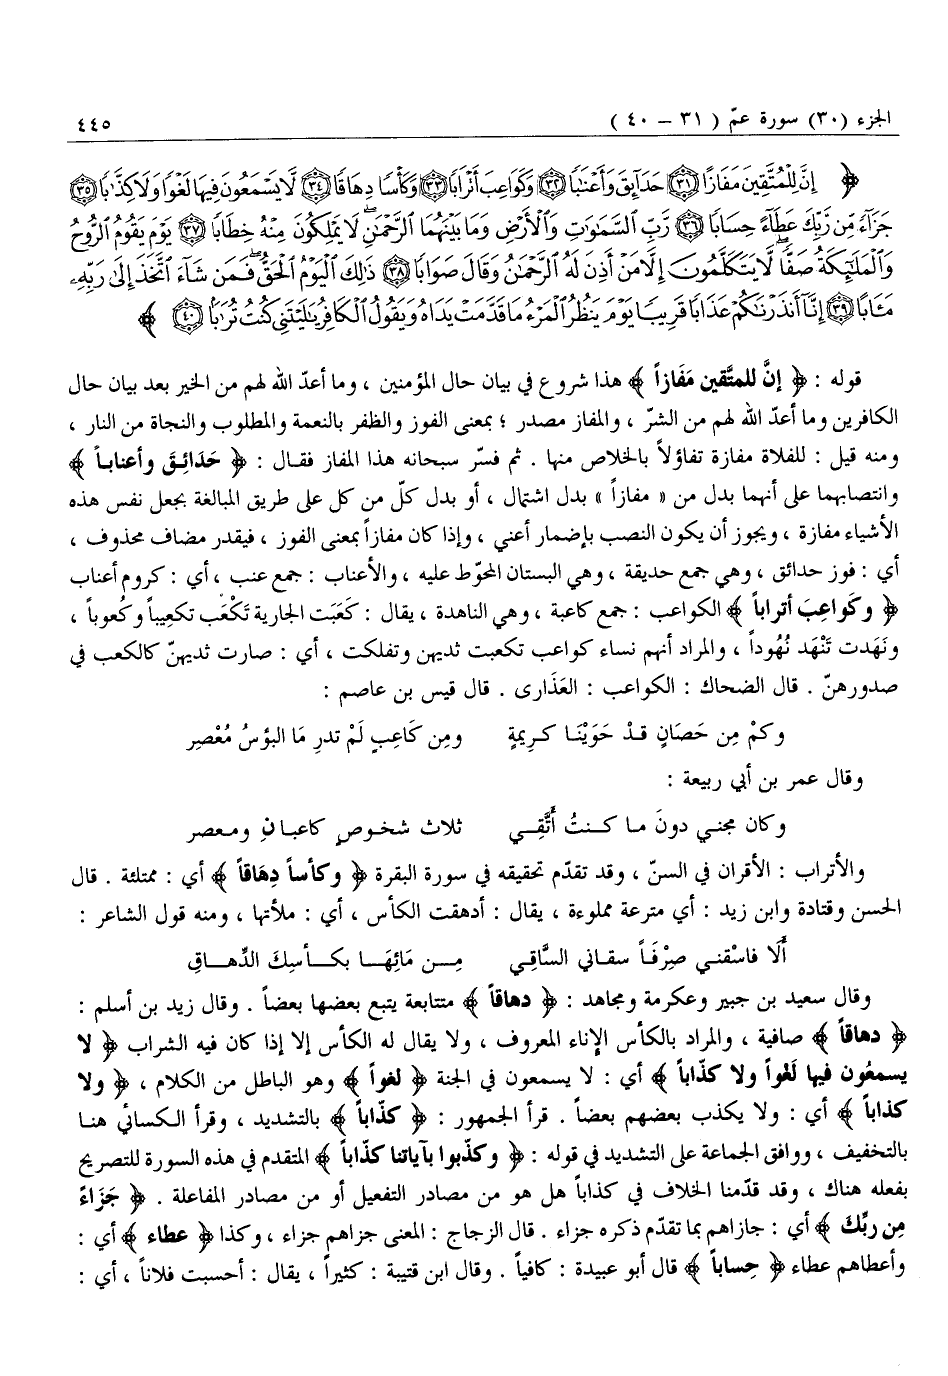 الجزء (٣٠) سورة عمّ ( ٣١ – ٤٠ ) ٤٤٥
﴿ إِنَّ لِلْمُتَّقِينَ مَفَازًا ٣١ حَدَآئِقَ وَأَعْنَٰبًا ٣٢ وَكَوَاعِبَ أَتْرَابًا ٣٣ وَكَأْسًا دِهَاقًا ٣٤ لَّا يَسْمَعُونَ فِيهَا لَغْوًا وَلَا كِذَّٰبًا ٣٥
جَزَآءً مِّن رَّبِّكَ عَطَآءً حِسَابًا ٣٦ رَّبِّ ٱلسَّمَٰوَٰتِ وَٱلْأَرْضِ وَمَا بَيْنَهُمَا ٱلرَّحْمَٰنِ ۖ لَا يَمْلِكُونَ مِنْهُ خِطَابًا ٣٧ يَوْمَ يَقُومُ ٱلرُّوحُ
وَٱلْمَلَٰٓئِكَةُ صَفًّا ۖ لَّا يَتَكَلَّمُونَ إِلَّا مَنْ أَذِنَ لَهُ ٱلرَّحْمَٰنُ وَقَالَ صَوَابًا ٣٨ ذَٰلِكَ ٱلْيَوْمُ ٱلْحَقُّ ۖ فَمَن شَآءَ ٱتَّخَذَ إِلَىٰ رَبِّهِۦ
مَـَٔابًا ٣٩ إِنَّآ أَنذَرْنَٰكُمْ عَذَابًا قَرِيبًا يَوْمَ يَنظُرُ ٱلْمَرْءُ مَا قَدَّمَتْ يَدَاهُ وَيَقُولُ ٱلْكَافِرُ يَٰلَيْتَنِى كُنتُ تُرَٰبًۢا ٤٠ ﴾
قوله : ﴿ إنَّ للمتَّقين مَفَازاً ﴾ هذا شروع في بيان حال المؤمنين ، وما أعدّ الله لهم من الخير بعد بيان حال
الكافرين وما أعدّ الله لهم من الشرّ ، والمفاز مصدر ؛ بمعنى الفوز والظفر بالنعمة والمطلوب والنجاة من النار ،
ومنه قيل : للفلاة مفازة تفاؤلاً بالخلاص منها . ثم فسّر سبحانه هذا المفاز فقال : ﴿ حَدَائِقَ وأعناباً ﴾
وانتصابهما على أنهما بدل من « مفازاً » بدل اشتمال ، أو بدل كلّ من كل على طريق المبالغة بجعل نفس هذه
الأشياء مفازة ، ويجوز أن يكون النصب بإضمار أعني ، وإذا كان مفازاً بمعنى الفوز ، فيقدر مضاف محذوف ،
أي : فوز حدائق ، وهي جمع حديقة ، وهي البستان المحوّط عليه ، والأعناب : جمع عنب ، أي : كروم أعناب
﴿ وكَواعِبَ أتراباً ﴾ الكواعب : جمع كاعبة ، وهي الناهدة ، يقال : كَعَبَت الجارية تَكْعَب تكعيباً وكُعوباً ،
ونَهَدت تَنْهَد نُهُوداً ، والمراد أنهم نساء كواعب تكعبت ثديهن وتفلكت ، أي : صارت ثديهنّ كالكعب في
صدورهنّ . قال الضحاك : الكواعب : العَذَارى . قال قيس بن عاصم :
وكمْ مِن حَصَانٍ قـدْ حَوَيْنَـا كـريمةٍ ومِن كَاعِبٍ لَمْ تدرِ مَا البؤسُ مُعْصِرِ
وقال عمر بن أبي ربيعة :
وكان مجنـي دونَ مـا كـنتُ أتَّقِـي ثلاث شخـوصٍ كاعبـانِ ومـعصر
والأتراب : الأقران في السنّ ، وقد تقدّم تحقيقه في سورة البقرة ﴿ وكأساً دِهَاقاً ﴾ أي : ممتلئة . قال
الحسن وقتادة وابن زيد : أي مترعة مملوءة ، يقال : أدهقت الكأس ، أي : ملأتها ، ومنه قول الشاعر :
أَلا فاسْقنـي صِرْفـاً سقـاني السَّاقِـي مِـن مَائِهَـا بكـأسِكَ الدِّهـاقِ
وقال سعيد بن جبير وعكرمة ومجاهد : ﴿ دهاقاً ﴾ متتابعة يتبع بعضها بعضاً . وقال زيد بن أسلم :
﴿ دهاقاً ﴾ صافية ، والمراد بالكأس الإناء المعروف ، ولا يقال له الكأس إلا إذا كان فيه الشراب ﴿ لا
يسمعُون فيها لَغْواً ولا كذّاباً ﴾ أي : لا يسمعون في الجنة ﴿ لغواً ﴾ وهو الباطل من الكلام ، ﴿ ولا
كذاباً ﴾ أي : ولا يكذب بعضهم بعضاً . قرأ الجمهور : ﴿ كذّاباً ﴾ بالتشديد ، وقرأ الكسائي هنـا
بالتخفيف ، ووافق الجماعة على التشديد في قوله : ﴿ وكذّبوا بآياتنا كذّاباً ﴾ المتقدم في هذه السورة للتصريح
بفعله هناك ، وقد قدّمنا الخلاف في كذاباً هل هو من مصادر التفعيل أو من مصادر المفاعلة . ﴿ جَزَاءً
مِن ربِّكَ ﴾ أي : جازاهم بما تقدّم ذكره جزاء . قال الزجاج : المعنى جزاهم جزاء ، وكذا ﴿ عطاء ﴾ أي :
وأعطاهم عطاء ﴿ حِساباً ﴾ قال أبو عبيدة : كافياً . وقال ابن قتيبة : كثيراً ، يقال : أحسبت فلاناً ، أي :